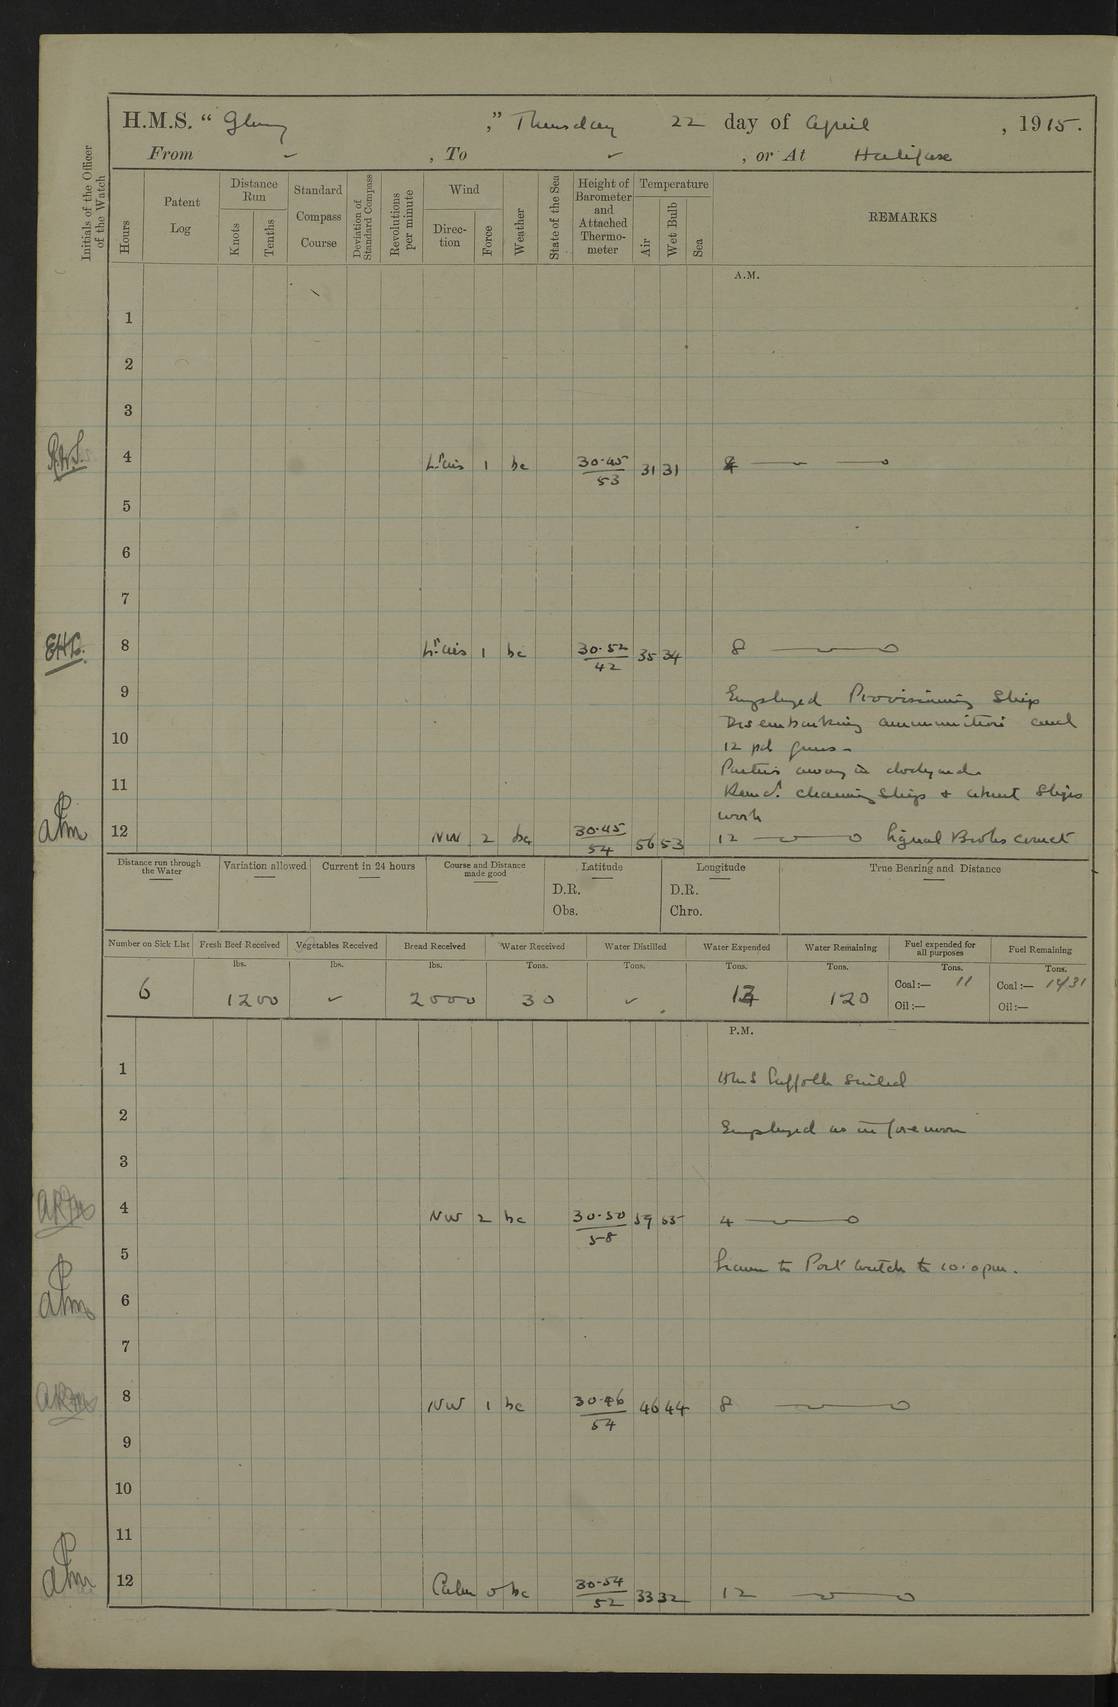 H.M.S. “ Glory ,” Thursday 22 day of April , 1915.
From ✓ , To ✓ , or At Halifax
Initials of the Officer of the Watch
Hours
Patent Log
Distance Run
Knots
Tenths
Standard Compass Course
Deviation of Standard Compass
Revolutions per minute
Wind
Direction
Force
Weather
State of the Sea
Height of Barometer and Attached Thermometer
Temperature
Air
Wet Bulb
Sea
REMARKS
A.M.
1
2
3
4 Lt airs 1 bc 30.45 53 31 31 4
5
6
7
8 Lt airs 1 bc 30.52 42 35 34 8
9 Employed Provisioning Ship
Disembarking ammunition and
10 12 pd guns -
Parties away in dockyard.
11 Remdr. cleaning ship & about Ships
work
12 NW 2 bc 30.45 54 56 53 12 Signal Books correct
Distance run through the Water
Variation allowed
Current in 24 hours
Course and Distance made good
Latitude
D.R.
Obs.
Longitude
D.R.
Chro.
True Bearing and Distance
Number on Sick List
Fresh Beef Received
Vegetables Received
Bread Received
Water Received
Water Distilled
Water Expended
Water Remaining
Fuel expended for all purposes
Fuel Remaining
lbs. lbs. lbs. Tons. Tons. Tons. Tons. Tons. Tons.
6 1200 ✓ 2000 30 ✓ 120 Coal:— 11 Coal:— 1431
Oil:— Oil:—
P.M.
1 HMS Suffolk sailed
2 Employed as in forenoon
3
4 NW 2 bc 30.50 58 59 55 4
5 Leave to Port watch to 10.0 pm.
6
7
8 NW 1 bc 30.46 54 46 44 8
9
10
11
12 Calm 0 bc 30.54 52 33 32 12